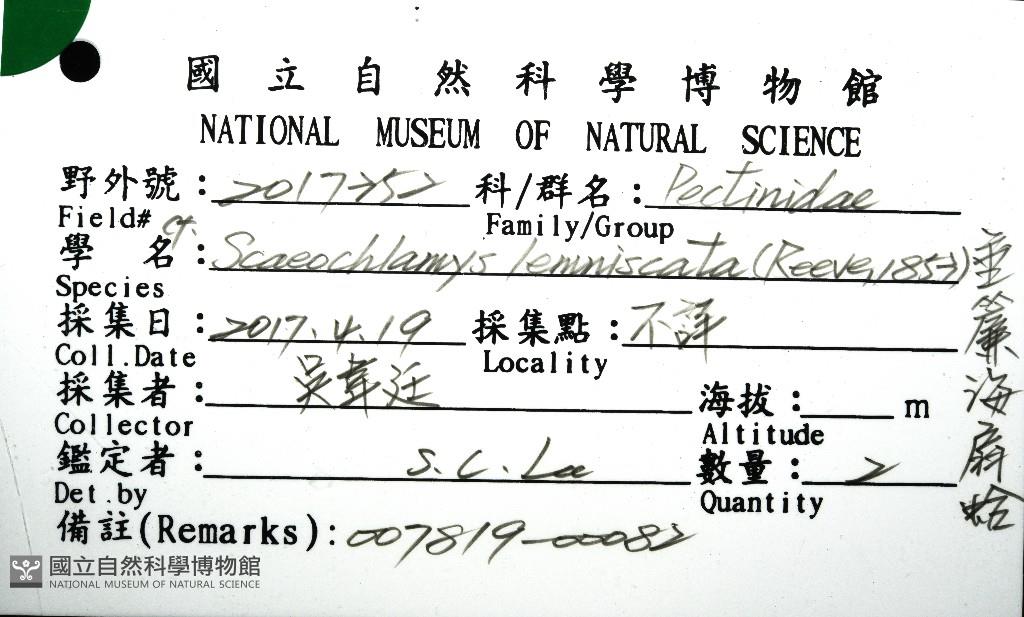 國立自然科學博物館
NATIONAL MUSEUM OF NATURAL SCIENCE
野外號：2017-752 科/群名：Pectinidae
Field# Family/Group
學名：cf. Scaeochlamys lemniscata (Reeve, 1853)
Species
採集日：2017.4.19 採集點：不詳
Coll.Date Locality
採集者：吳韋廷 海拔： m
Collector Altitude
鑑定者：S.C. Lee 數量：2
Det.by Quantity
備註(Remarks)：007819-00082
垂簾海扇蛤
國立自然科學博物館
NATIONAL MUSEUM OF NATURAL SCIENCE